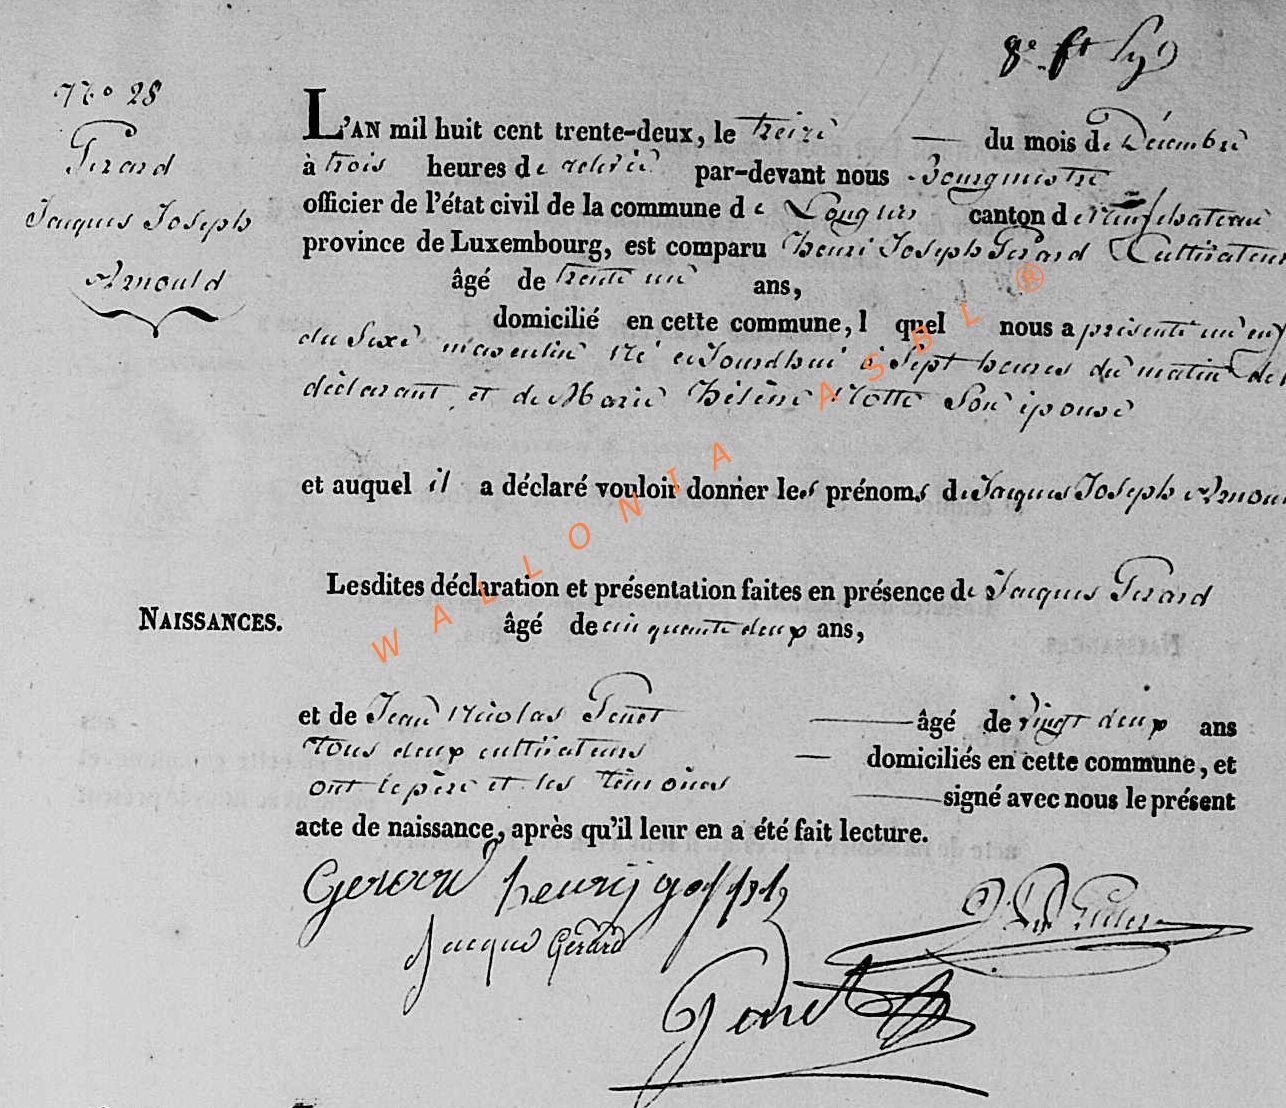 8e ft
No 28
Gerard
Jacques Joseph
Arnould
L'AN mil huit cent trente-deux, le treize du mois de Décembre
à trois heures de relevée par-devant nous Bourgmestre
officier de l'état civil de la commune de Longlier canton de Neufchateau
province de Luxembourg, est comparu henri Joseph Gerard Cultivateur
âgé de trente un ans,
domicilié en cette commune, l quel nous a présenté un enf
du Sexe masculin né aujourdhui à Sept heures du matin de
déclarant et de Marie hélène Notte Son épouse
et auquel il a déclaré vouloir donner les prénoms de Jacques Joseph Arnou
Lesdites déclaration et présentation faites en présence de Jacques Gerard
NAISSANCES.
âgé de cinquante deux ans,
et de Jean Nicolas Genet âgé de vingt deux ans
Tous deux cultivateurs domiciliés en cette commune, et
ont le père et les témoins signé avec nous le présent
acte de naissance, après qu'il leur en a été fait lecture.
Gerard henrij
Jacque Gerard
Genet
WALLONIA ASBL ®